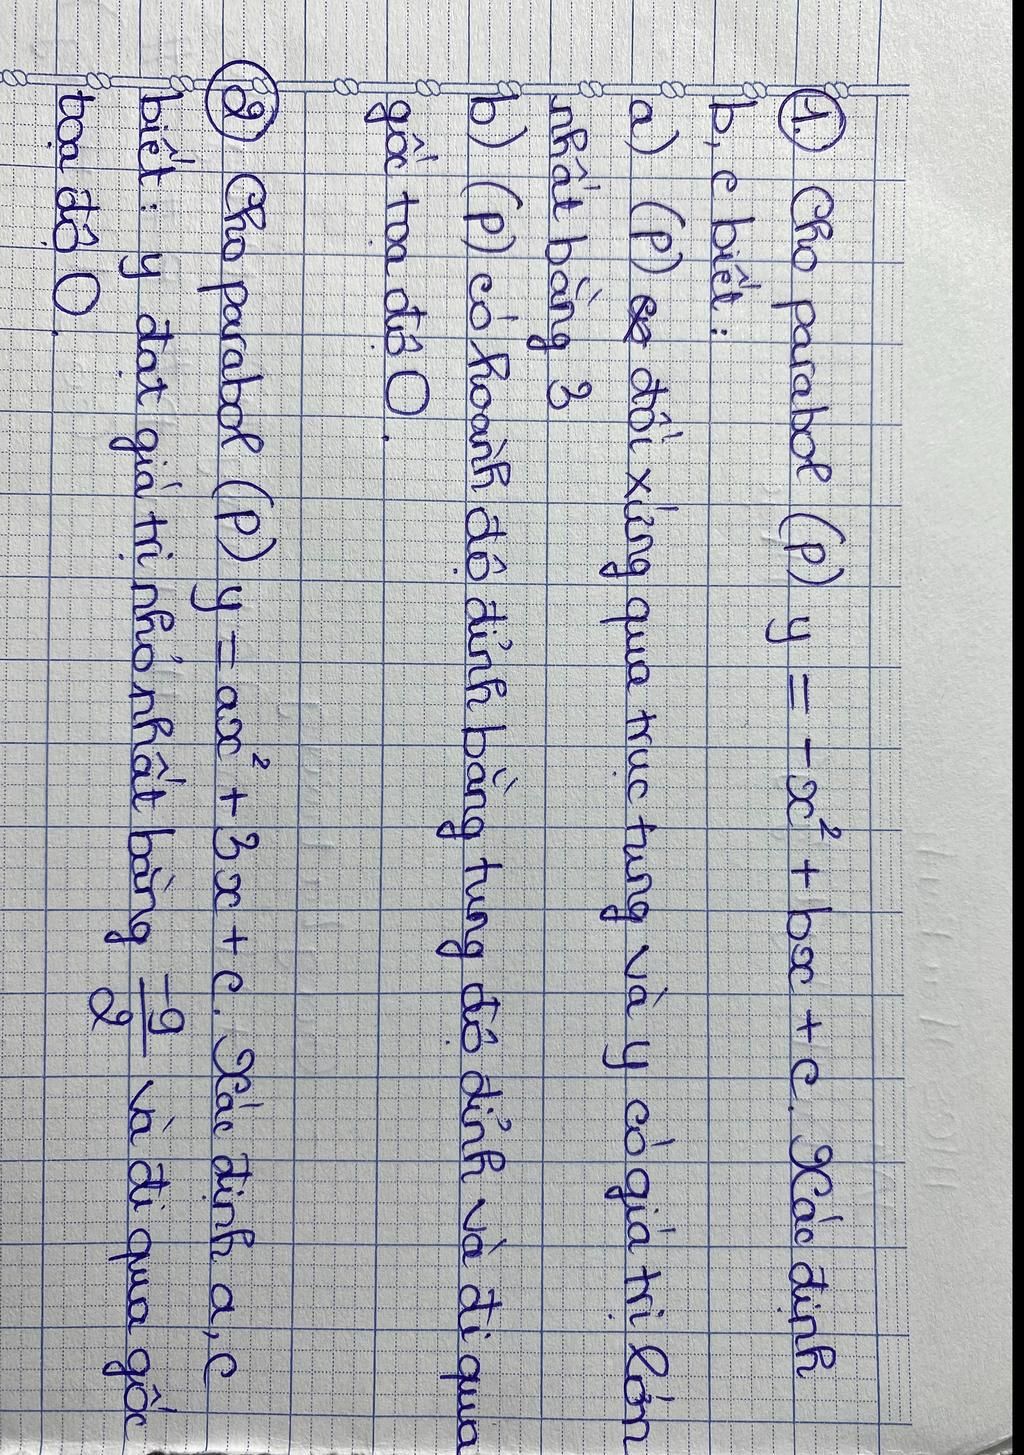 1. Cho parabol (P) y = -x² + bx + c. Xác định
b, c biết:
a) (P) đối xứng qua trục tung và y có giá trị lớn
nhất bằng 3
b) (P) có hoành độ đỉnh bằng tung độ đỉnh và đi qua
gốc toạ độ O.
2) Cho parabol (P) y = ax² + 3x + c. Xác định a, c
biết: y đạt giá trị nhỏ nhất bằng -9/2 và đi qua gốc
toạ độ O.